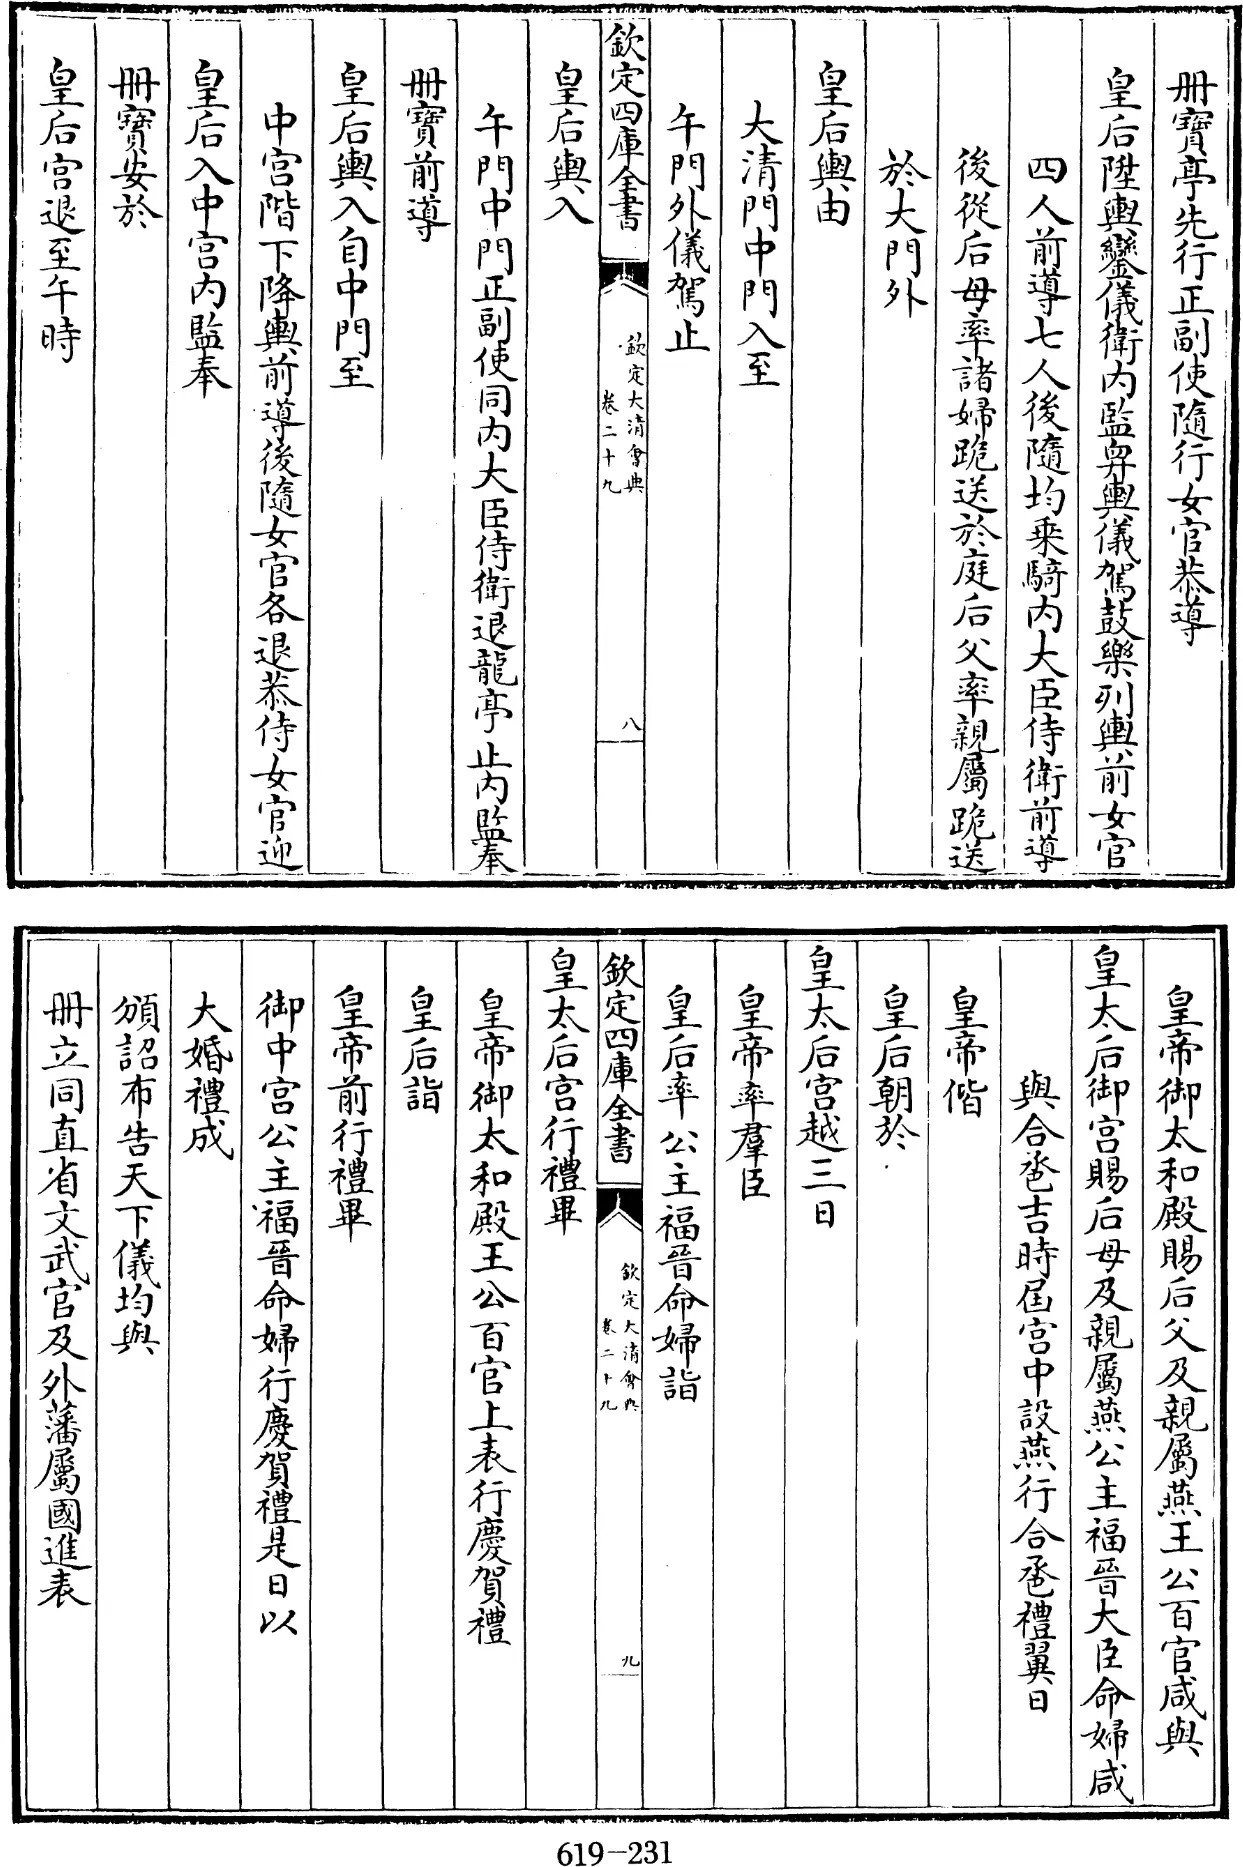 冊寶亭先行正副使隨行女官恭導
皇后陞輿鑾儀衛内監舁輿儀駕鼓樂列輿前女官
四人前導七人後隨均乘騎内大臣侍衛前導
後從后母率諸婦跪送於庭后父率親屬跪送
於大門外
皇后輿由
大清門中門入至
午門外儀駕止
欽定四庫全書
欽定大清會典
卷二十九
八
皇后輿入
午門中門正副使同内大臣侍衛退龍亭止内監奉
冊寶前導
皇后輿入自中門至
中宮階下降輿前導後隨女官各退恭侍女官迎
皇后入中宮内監奉
冊寶安於
皇后宮退至午時
皇帝御太和殿賜后父及親屬燕王公百官咸與
皇太后御宮賜后母及親屬燕公主福晉大臣命婦咸
與合巹吉時届宮中設燕行合巹禮翼日
皇帝偕
皇后朝於
皇太后宮越三日
皇帝率羣臣
皇后率公主福晉命婦詣
欽定四庫全書
欽定大清會典
卷二十九
九
皇太后宮行禮畢
皇帝御太和殿王公百官上表行慶賀禮
皇后詣
皇帝前行禮畢
御中宮公主福晉命婦行慶賀禮是日以
大婚禮成
頒詔布告天下儀均與
冊立同直省文武官及外藩屬國進表
619-231